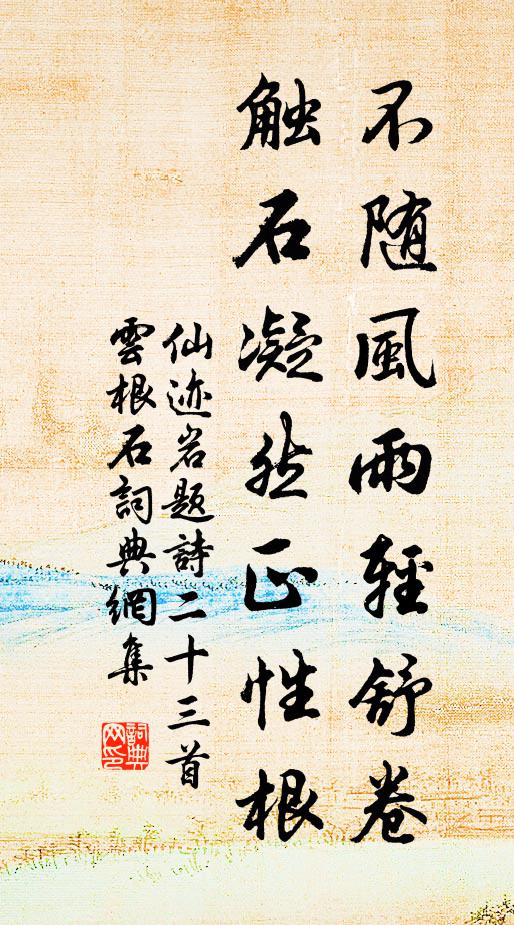 不随風雨輕舒卷
触石凝然正性根
仙迹岩題詩二十三首
雲根石詞典網集
詞典
网印